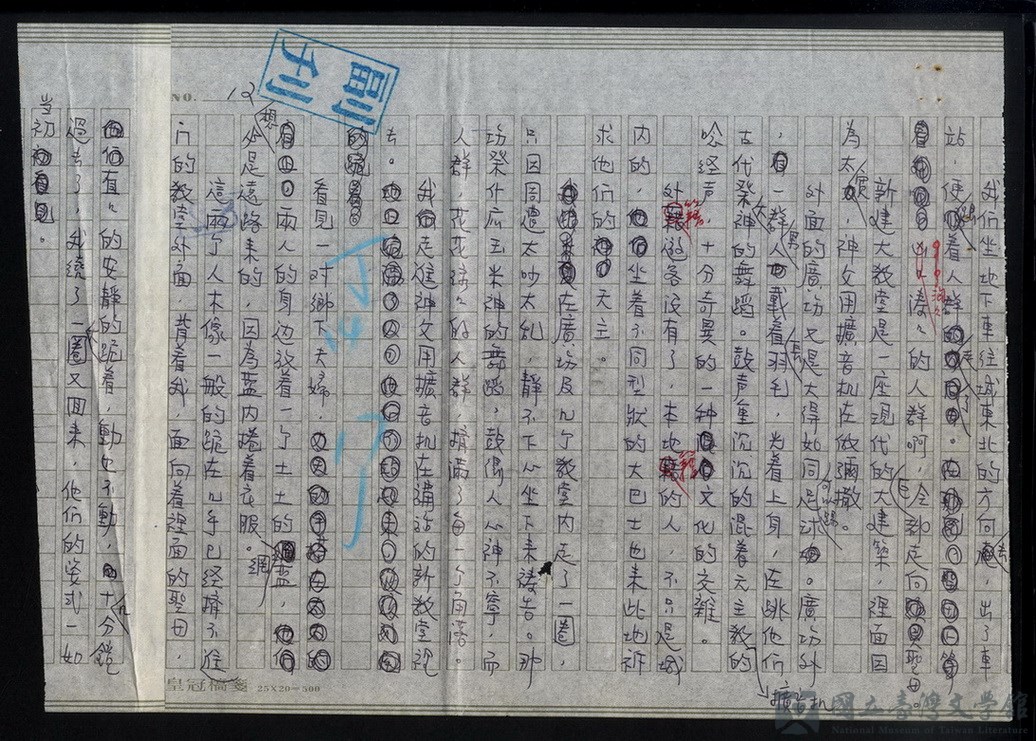 NO. 12
副刊
我们坐地下車往城東北的方向去，出了車
站，便跟着人群走
的人群啊，全都走向聖母。
新建大教堂是一座現代的大建築，裡面因
為太擠，神父用擴音机在做彌撒。
外面的廣場又是大得如同足球場。廣場外
，有一大群人戴着羽毛，光着上身，在跳他们
古代祭神的舞蹈。鼓声重沉沉的混着天主教的
擴音机
唸经声，十分奇異的一种文化的交雜。
外籍遊客没有了，本地籍的人，不只是城
内的，坐着不同型狀的大巴士也来此地祈
求他们的天主。
我在廣場及几个教堂内走了一圈，
只因周遭太吵太乱，静不下心坐下来祷告。那
場祭什麼玉米神的舞蹈，鼓得人心神不寧，而
人群，花花绿绿的人群，擠滿了每一个角落。
我走進神父用擴音机在講道的新教堂裡
去。
看見一对鄉下夫婦，
兩人的身边放着一个土土的網籃，想
必是遠路来的，因為籃内捲着衣服。
這兩个人不像一般的跪在几乎已经擠不進
门的教堂外面，背着我，面向着裡面的聖母，
有的安靜的跪着，動也不動，十分鐘
過去了，我繞了一圈又回来，他们的姿式一如
当初。
皇冠稿箋 25X20=500
國立臺灣文學館
National Museum of Taiwan Literature